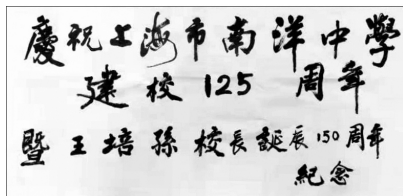 慶祝上海市南洋中學
建校125周年
暨王培孫校長誕辰150周年
紀念